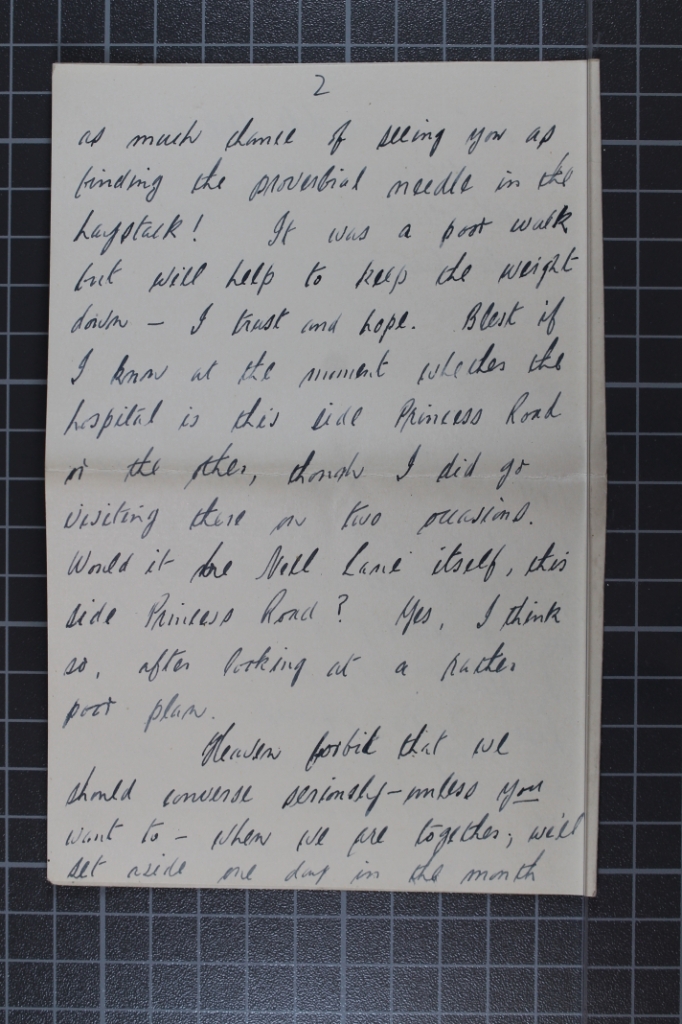 2
as much chance of seeing you as
finding the proverbial needle in the
haystack! It was a poor walk
but will help to keep the weight
down – I trust and hope. Blest if
I know at the moment whether the
hospital is this side Princess Road
or the other, though I did go
visiting there on two occasions.
Would it be Nell Lane itself, this
side Princess Road? Yes, I think
so, after looking at a rather
poor plan.
Heaven forbid that we
should converse seriously – unless you
want to – when we are together; we'll
set aside one day in the month